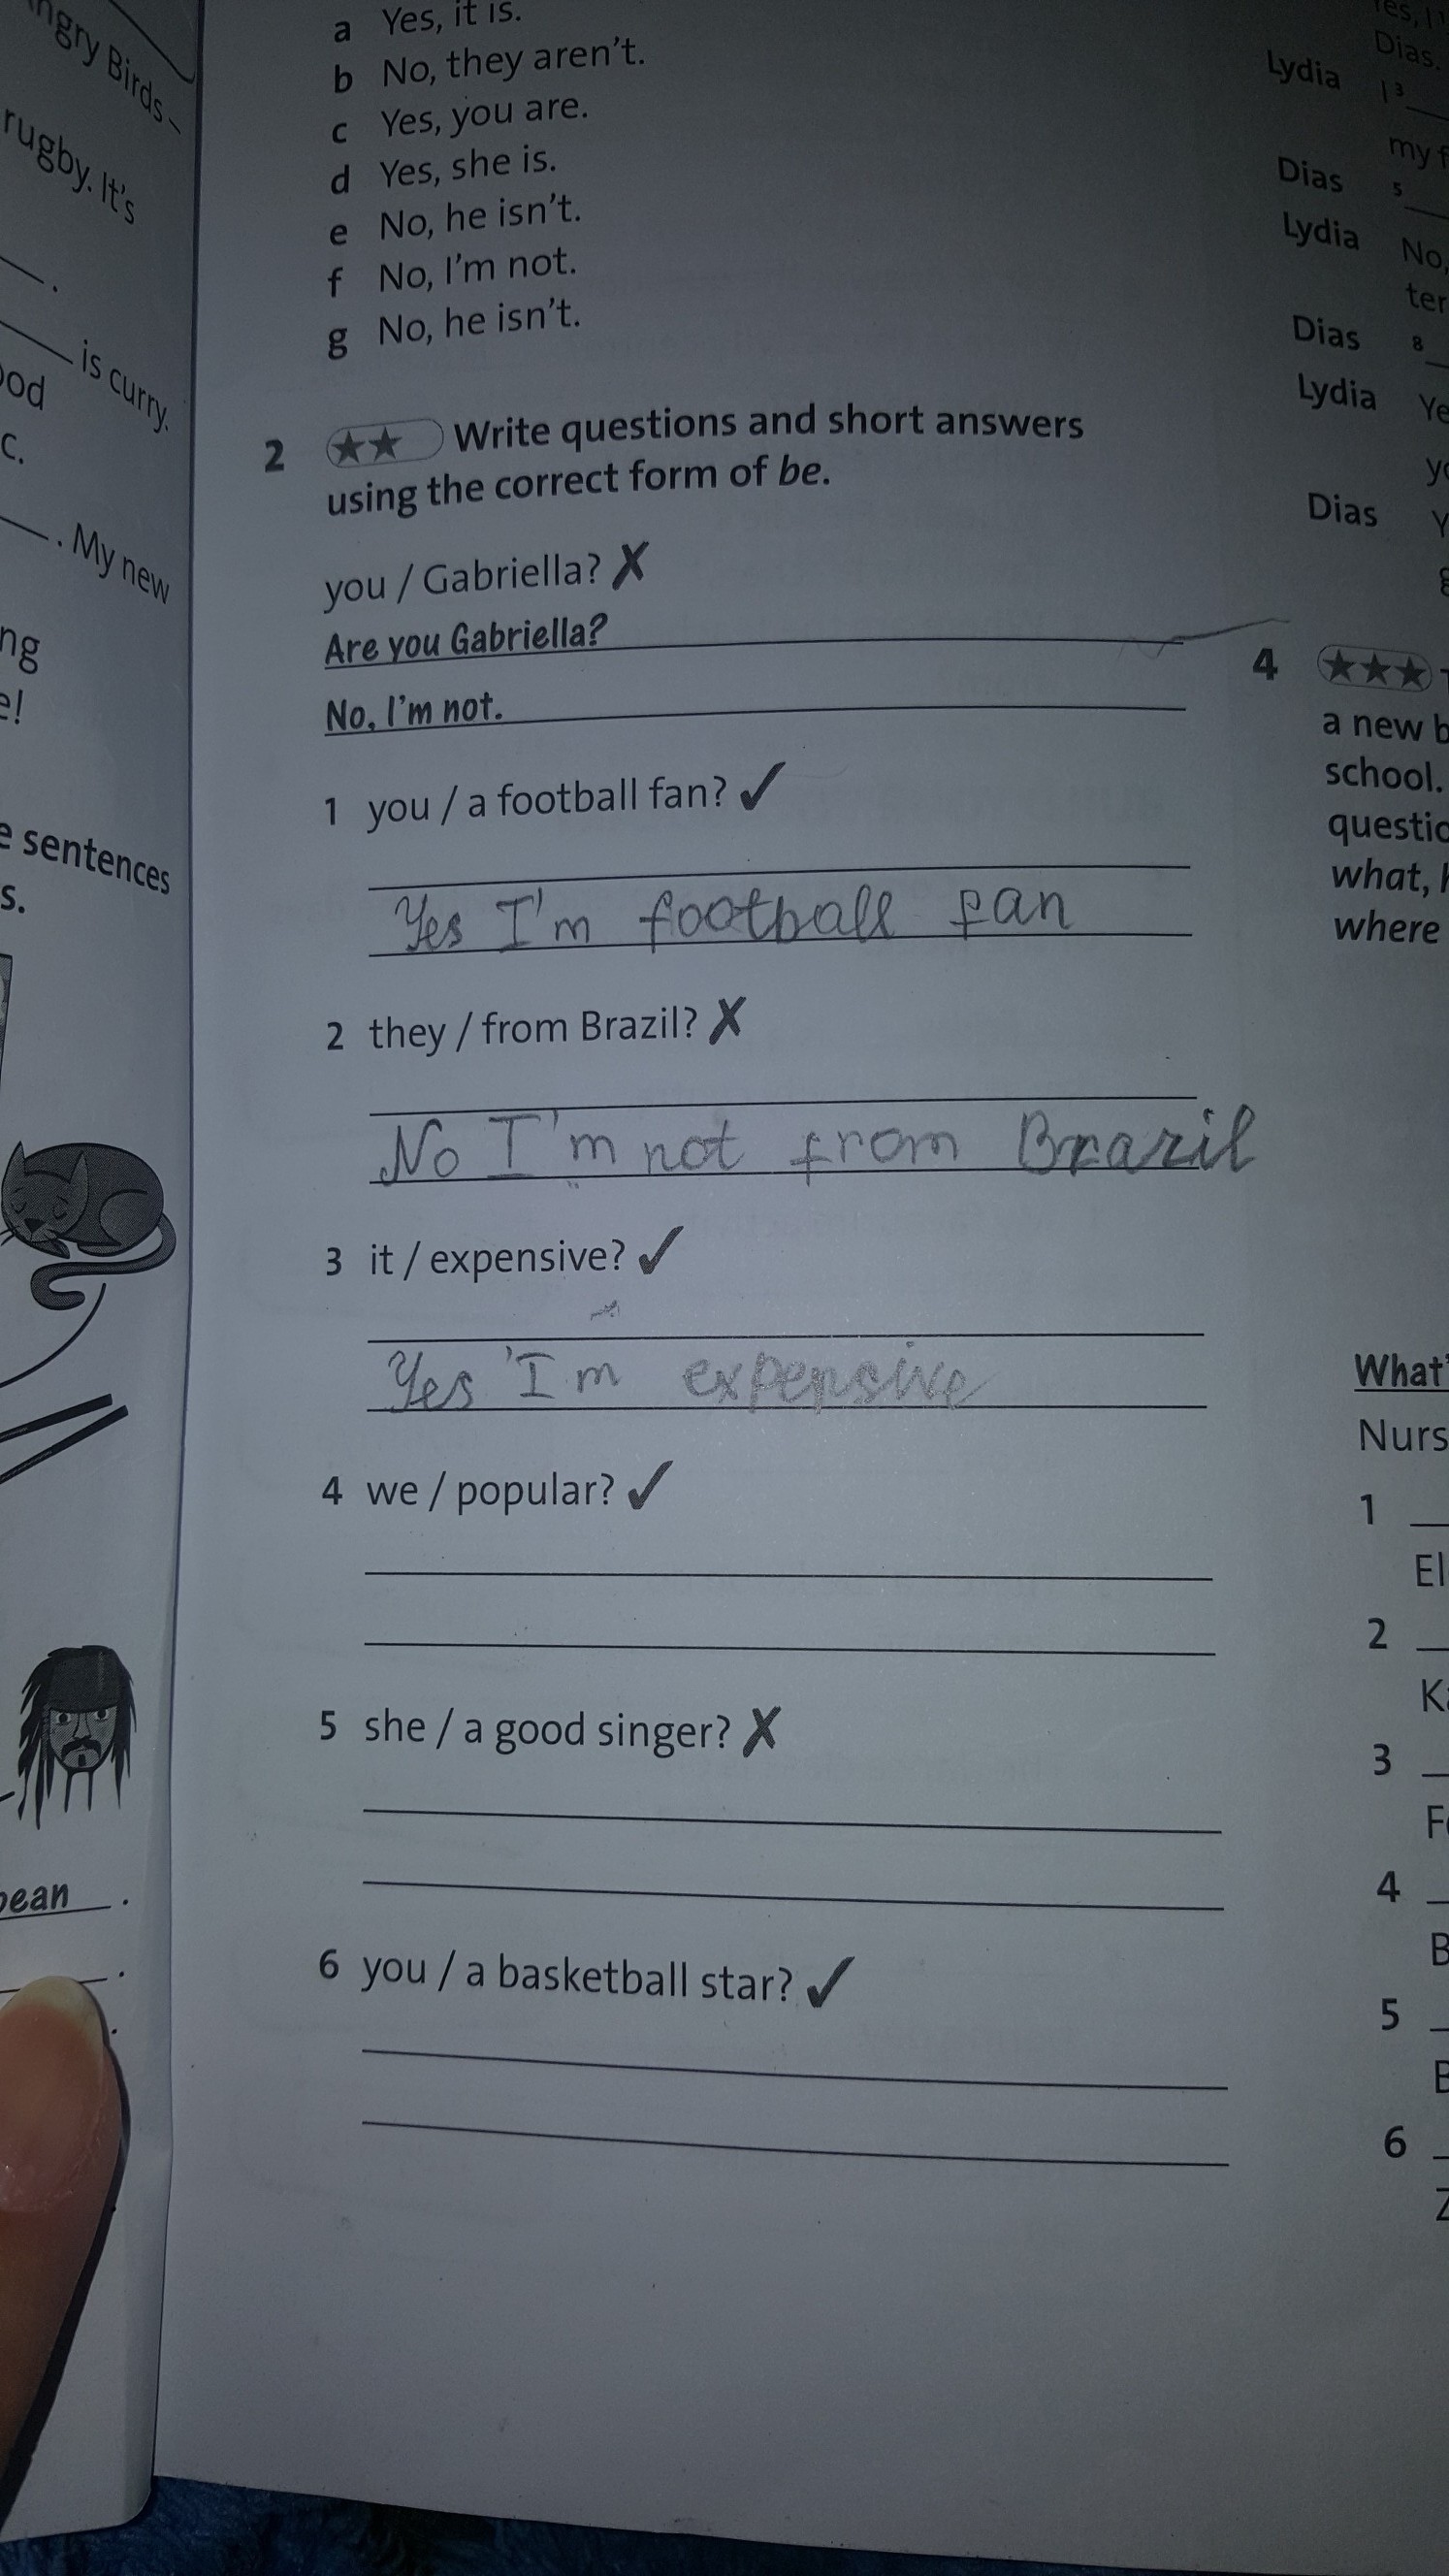 ngry Birds –
rugby. It's
.
is curry.
c.
. My new
ng
e!
e sentences
s.
bean .
.
a Yes, it is.
b No, they aren't.
c Yes, you are.
d Yes, she is.
e No, he isn't.
f No, I'm not.
g No, he isn't.
2 ★★ Write questions and short answers
using the correct form of be.
you / Gabriella? ✗
Are you Gabriella?
No, I'm not.
1 you / a football fan? ✓
Yes I'm football fan
2 they / from Brazil? ✗
No I'm not from Brazil
3 it / expensive? ✓
Yes 'I m expensive
4 we / popular? ✓
5 she / a good singer? ✗
6 you / a basketball star? ✓
Dias.
Lydia I ³
my f
Dias ⁵
Lydia No,
ter
Dias ⁸
Lydia Ye
yo
Dias Y
g
4 ★★★
a new b
school.
questio
what, h
where
What'
Nurs
1
El
2
K
3
F
4
B
5
B
6
Z